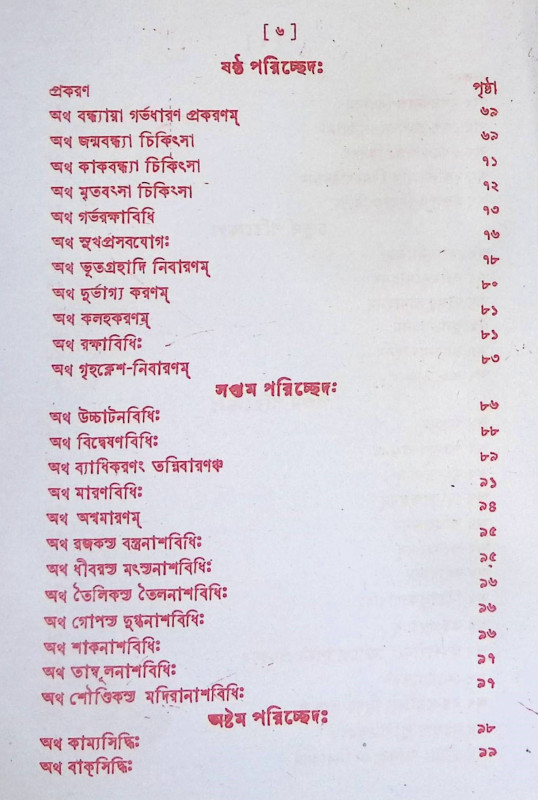 [ ৬ ]
ষষ্ঠ পরিচ্ছেদঃ
প্রকরণ পৃষ্ঠা
অথ বন্ধ্যায়া গর্ভধারণ প্রকরণম্ ৬৯
অথ জন্মবন্ধ্যা চিকিৎসা ৬৯
অথ কাকবন্ধ্যা চিকিৎসা ৭১
অথ মৃতবৎসা চিকিৎসা ৭২
অথ গর্ভরক্ষাবিধি ৭৩
অথ সুখপ্রসবযোগঃ ৭৬
অথ ভূতগ্রহাদি নিবারণম্ ৭৮
অথ দুর্ভাগ্য করণম্ ৮০
অথ কলহকরণম্ ৮১
অথ রক্ষাবিধিঃ ৮১
অথ গৃহক্লেশ-নিবারণম্ ৮৩
সপ্তম পরিচ্ছেদঃ
অথ উচ্চাটনবিধিঃ ৮৬
অথ বিদ্বেষণবিধিঃ ৮৮
অথ ব্যাধিকরণং তন্নিবারণঞ্চ ৮৯
অথ মারণবিধিঃ ৯১
অথ অশ্বমারণম্ ৯৪
অথ রজকস্য বস্ত্রনাশবিধিঃ ৯৫
অথ ধীবরস্য মৎস্যনাশবিধিঃ ৯৫
অথ তৈলিকস্য তৈলনাশবিধিঃ ৯৬
অথ গোপস্য দুগ্ধনাশবিধিঃ ৯৬
অথ শাকনাশবিধিঃ ৯৬
অথ তাম্বূলনাশবিধিঃ ৯৭
অথ শৌণ্ডিকস্য মদিরানাশবিধিঃ ৯৭
অষ্টম পরিচ্ছেদঃ
অথ কাম্যসিদ্ধিঃ ৯৮
অথ বাক্‌সিদ্ধিঃ ৯৯